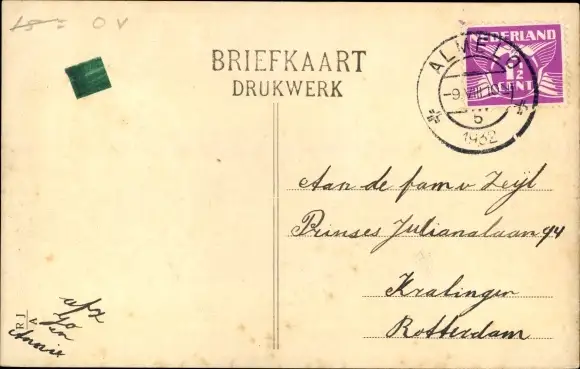 O V
BRIEFKAART
DRUKWERK
NEDERLAND
1½
CENT
ALMELO
-9.VIII
5
1932
Aan de fam v Zeijl
Prinses Julianalaan 94
Kralingen
Rotterdam
afz
Jo
en
Annie
R J